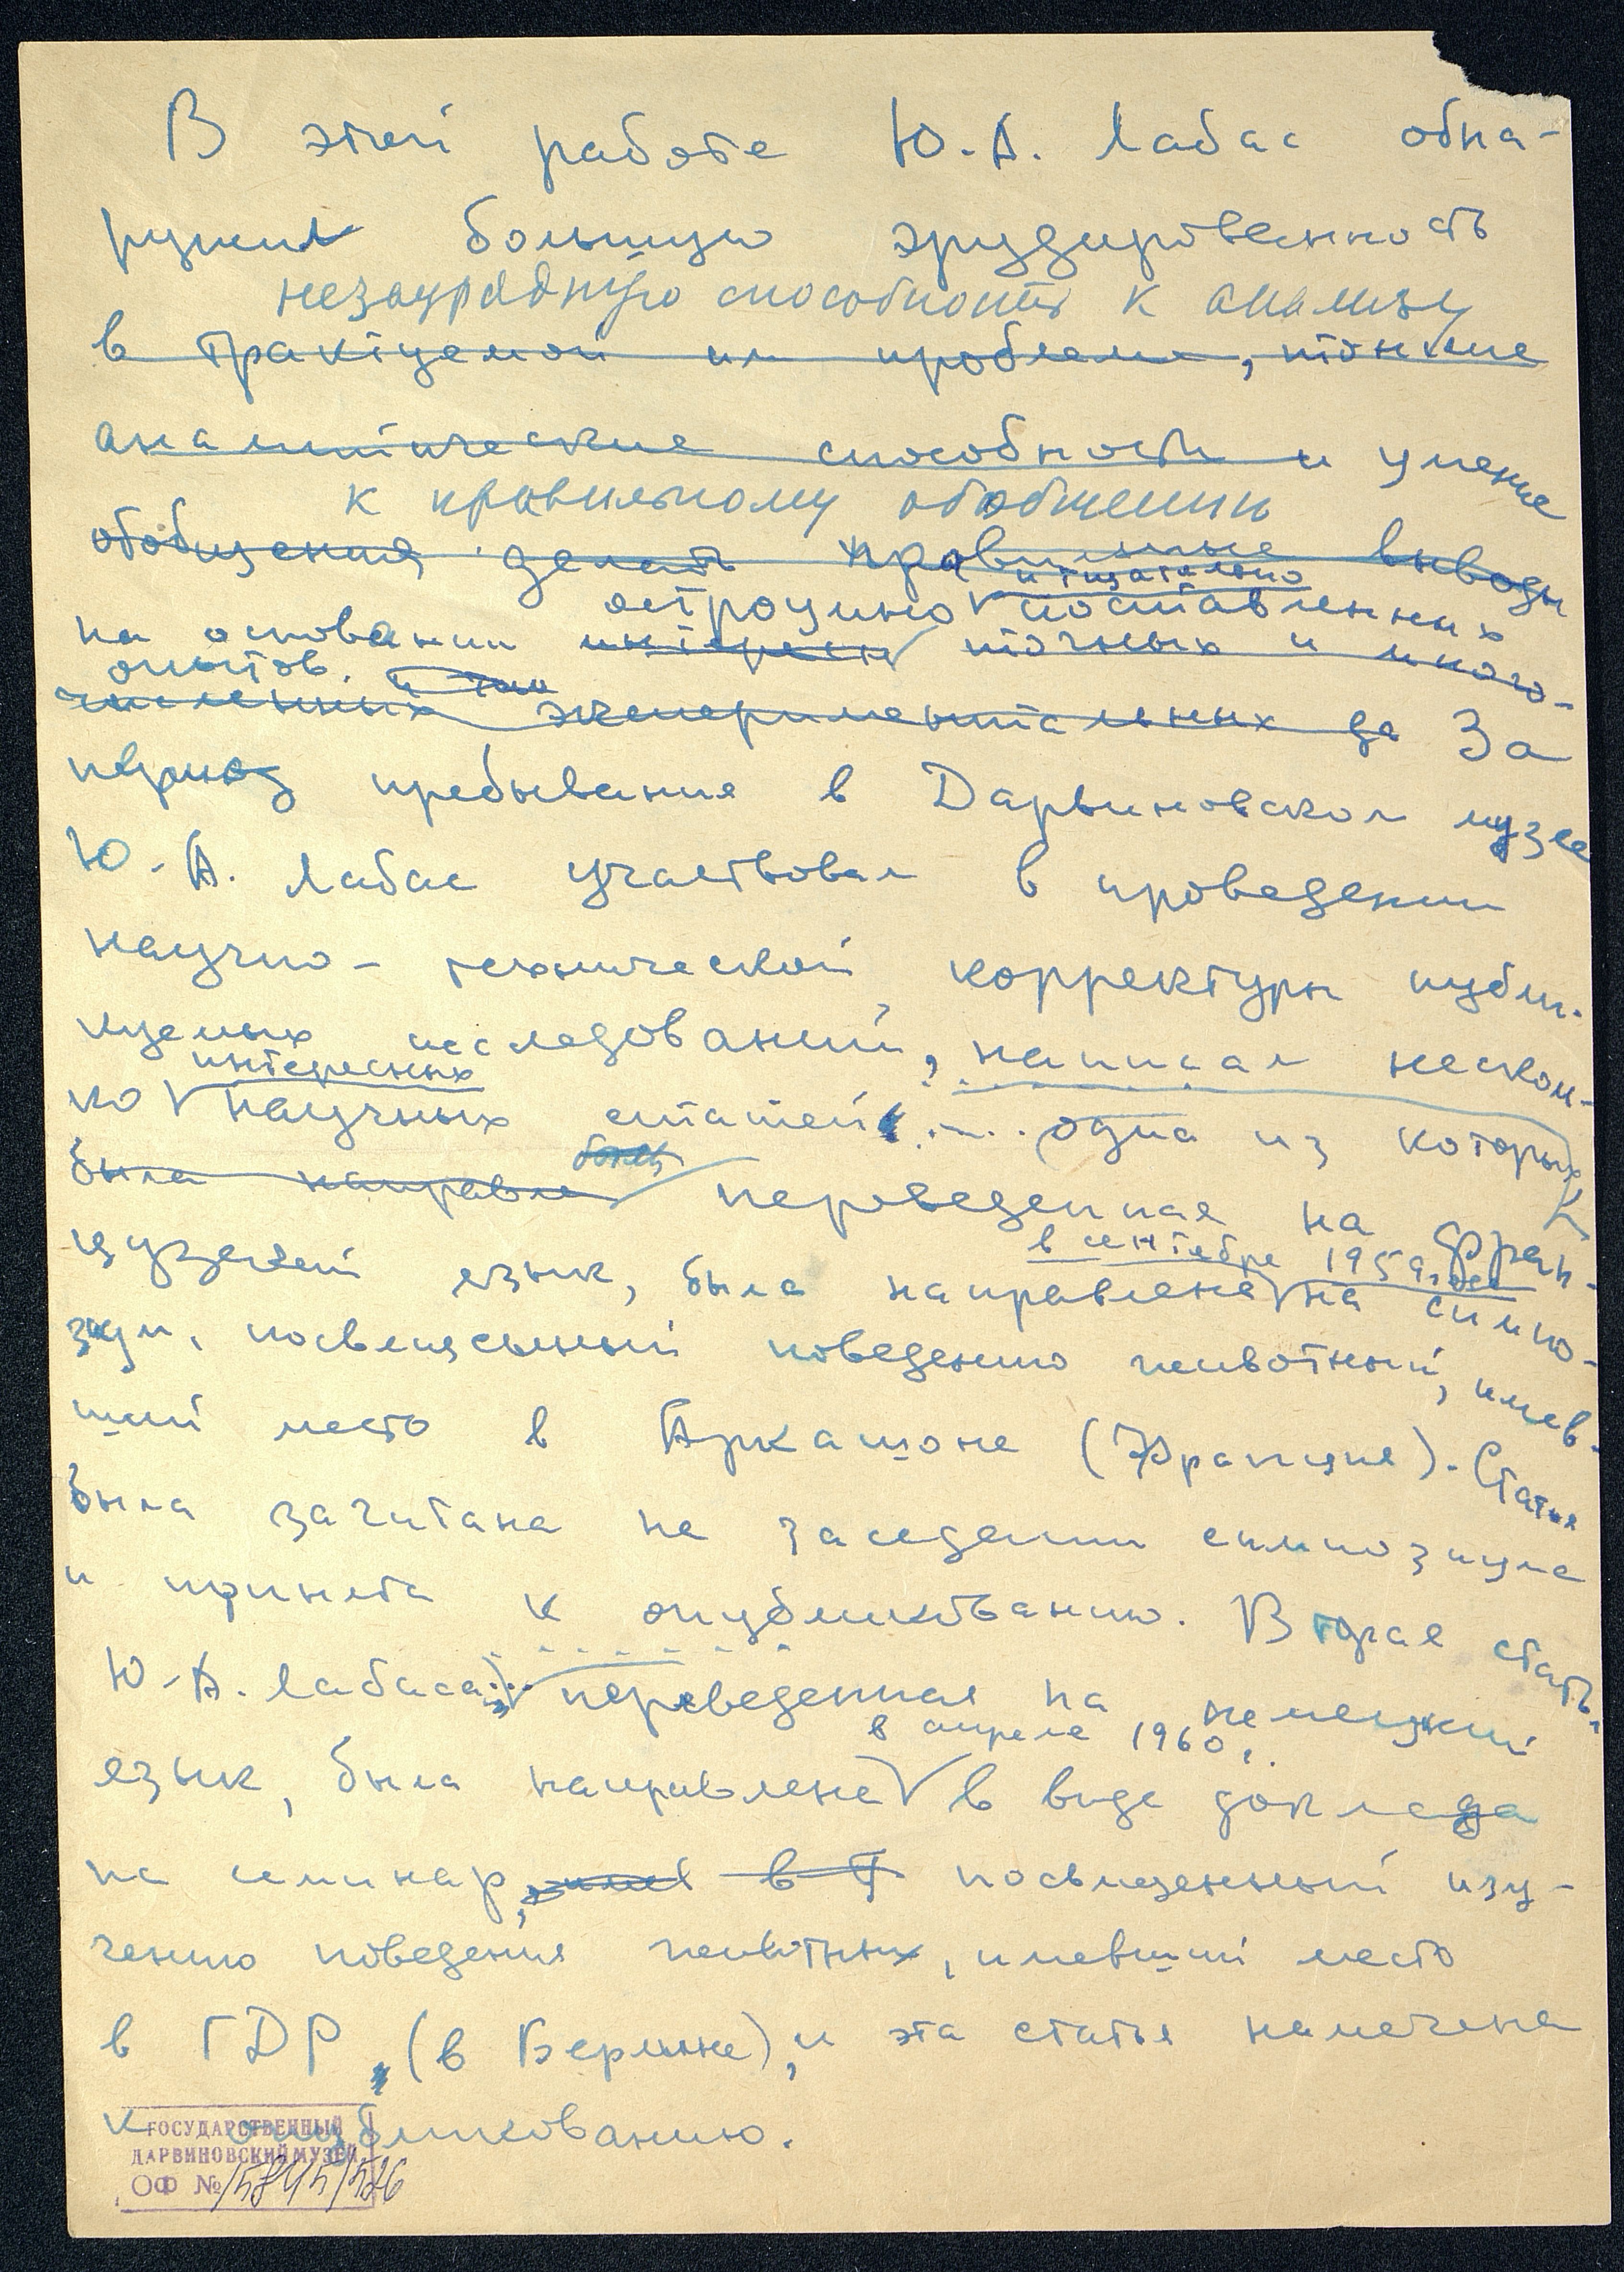 В этой работе Ю.А. Лабас обна-
ружил большую эрудированность
незаурядную способность к анализу
в трактуемой им проблеме, тонкие
аналитические способности и умение
к правильному обобщению
обобщения делать правильные выводы
и тщательно
остроумно поставленных
на основании интересн точных и много-
опытов. и точ
численных экспериментальных да За
период пребывания в Дарвиновском музее
Ю.А. Лабас участвовал в проведении
научно-технической корректуры публи-
куемых исследований, написал несколь-
интересных
ко научных статей одна из которых
была направле
переведенная на фран-
в сентябре 1959 года
цузский язык, была направлена на симпо-
зиум, посвященный поведению животных, имев-
ший место в Аркашоне (Франция). Статья
была зачитана на заседании симпозиума
и принята к опубликованию. Вторая статья
Ю.А. Лабаса, переведенная на немецкий
в апреле 1960 г.
язык, была направлена в виде доклада
на семинар, имев в Г посвященный изу-
чению поведения животных, имевший место
в ГДР (в Берлине), и эта статья намечена
к опубликованию.
ГОСУДАРСТВЕННЫЙ
ДАРВИНОВСКИЙ МУЗЕЙ
ОФ № 15845/526